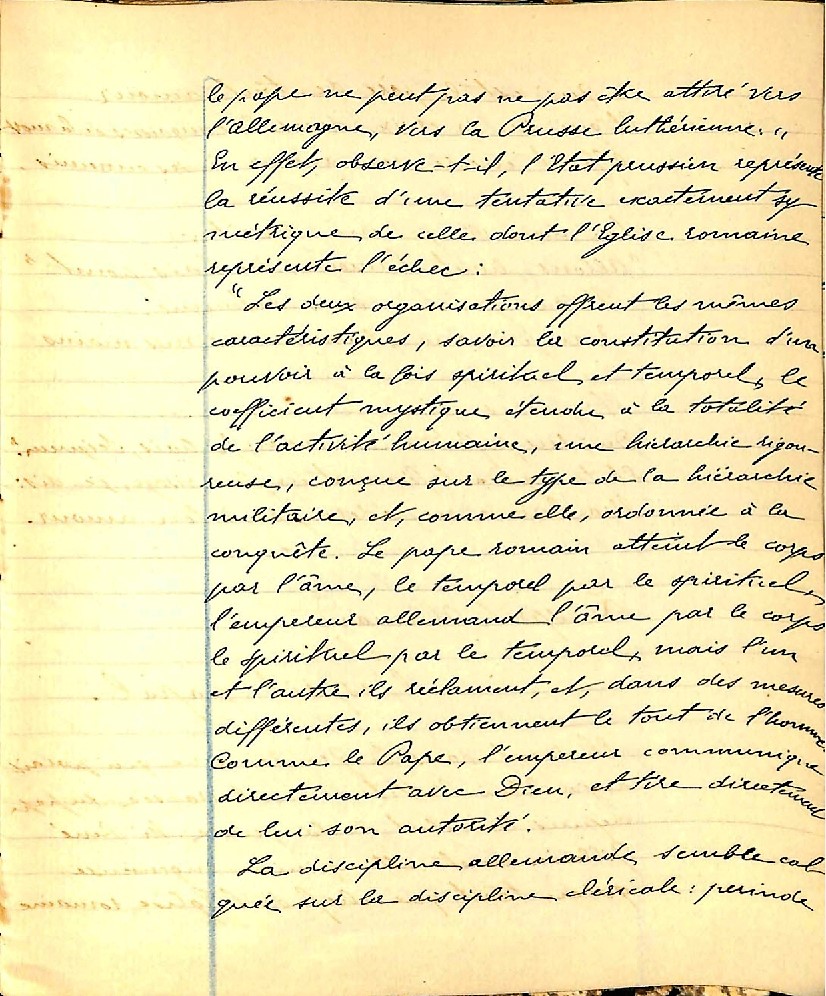 le pape ne peut pas ne pas être attiré vers
l'allemagne, vers la Prusse luthérienne. "
En effet, observe-t-il, l'Etat prussien représente
la réussite d'une tentative exactement sy
métrique de celle dont l'Eglise romaine
représente l'échec :
"Les deux organisations offrent les mêmes
caractéristiques, savoir la constitution d'un
pouvoir à la fois spirituel et temporel, le
coefficient mystique étendu à la totalité
de l'activité humaine, une hiérarchie rigou-
reuse, conçue sur le type de la hiérarchie
militaire, et, comme elle, ordonnée à la
conquête. Le pape romain atteint le corps
par l'âme, le temporel par le spirituel,
l'empereur allemand l'âme par le corps
le spirituel par le temporel, mais l'un
et l'autre ils réclament, et, dans des mesures
différentes, ils obtiennent le tout de l'homme.
Comme le Pape, l'empereur communique
directement avec Dieu, et tire directement
de lui son autorité.
La discipline allemande semble cal
quée sur la discipline cléricale : perinde